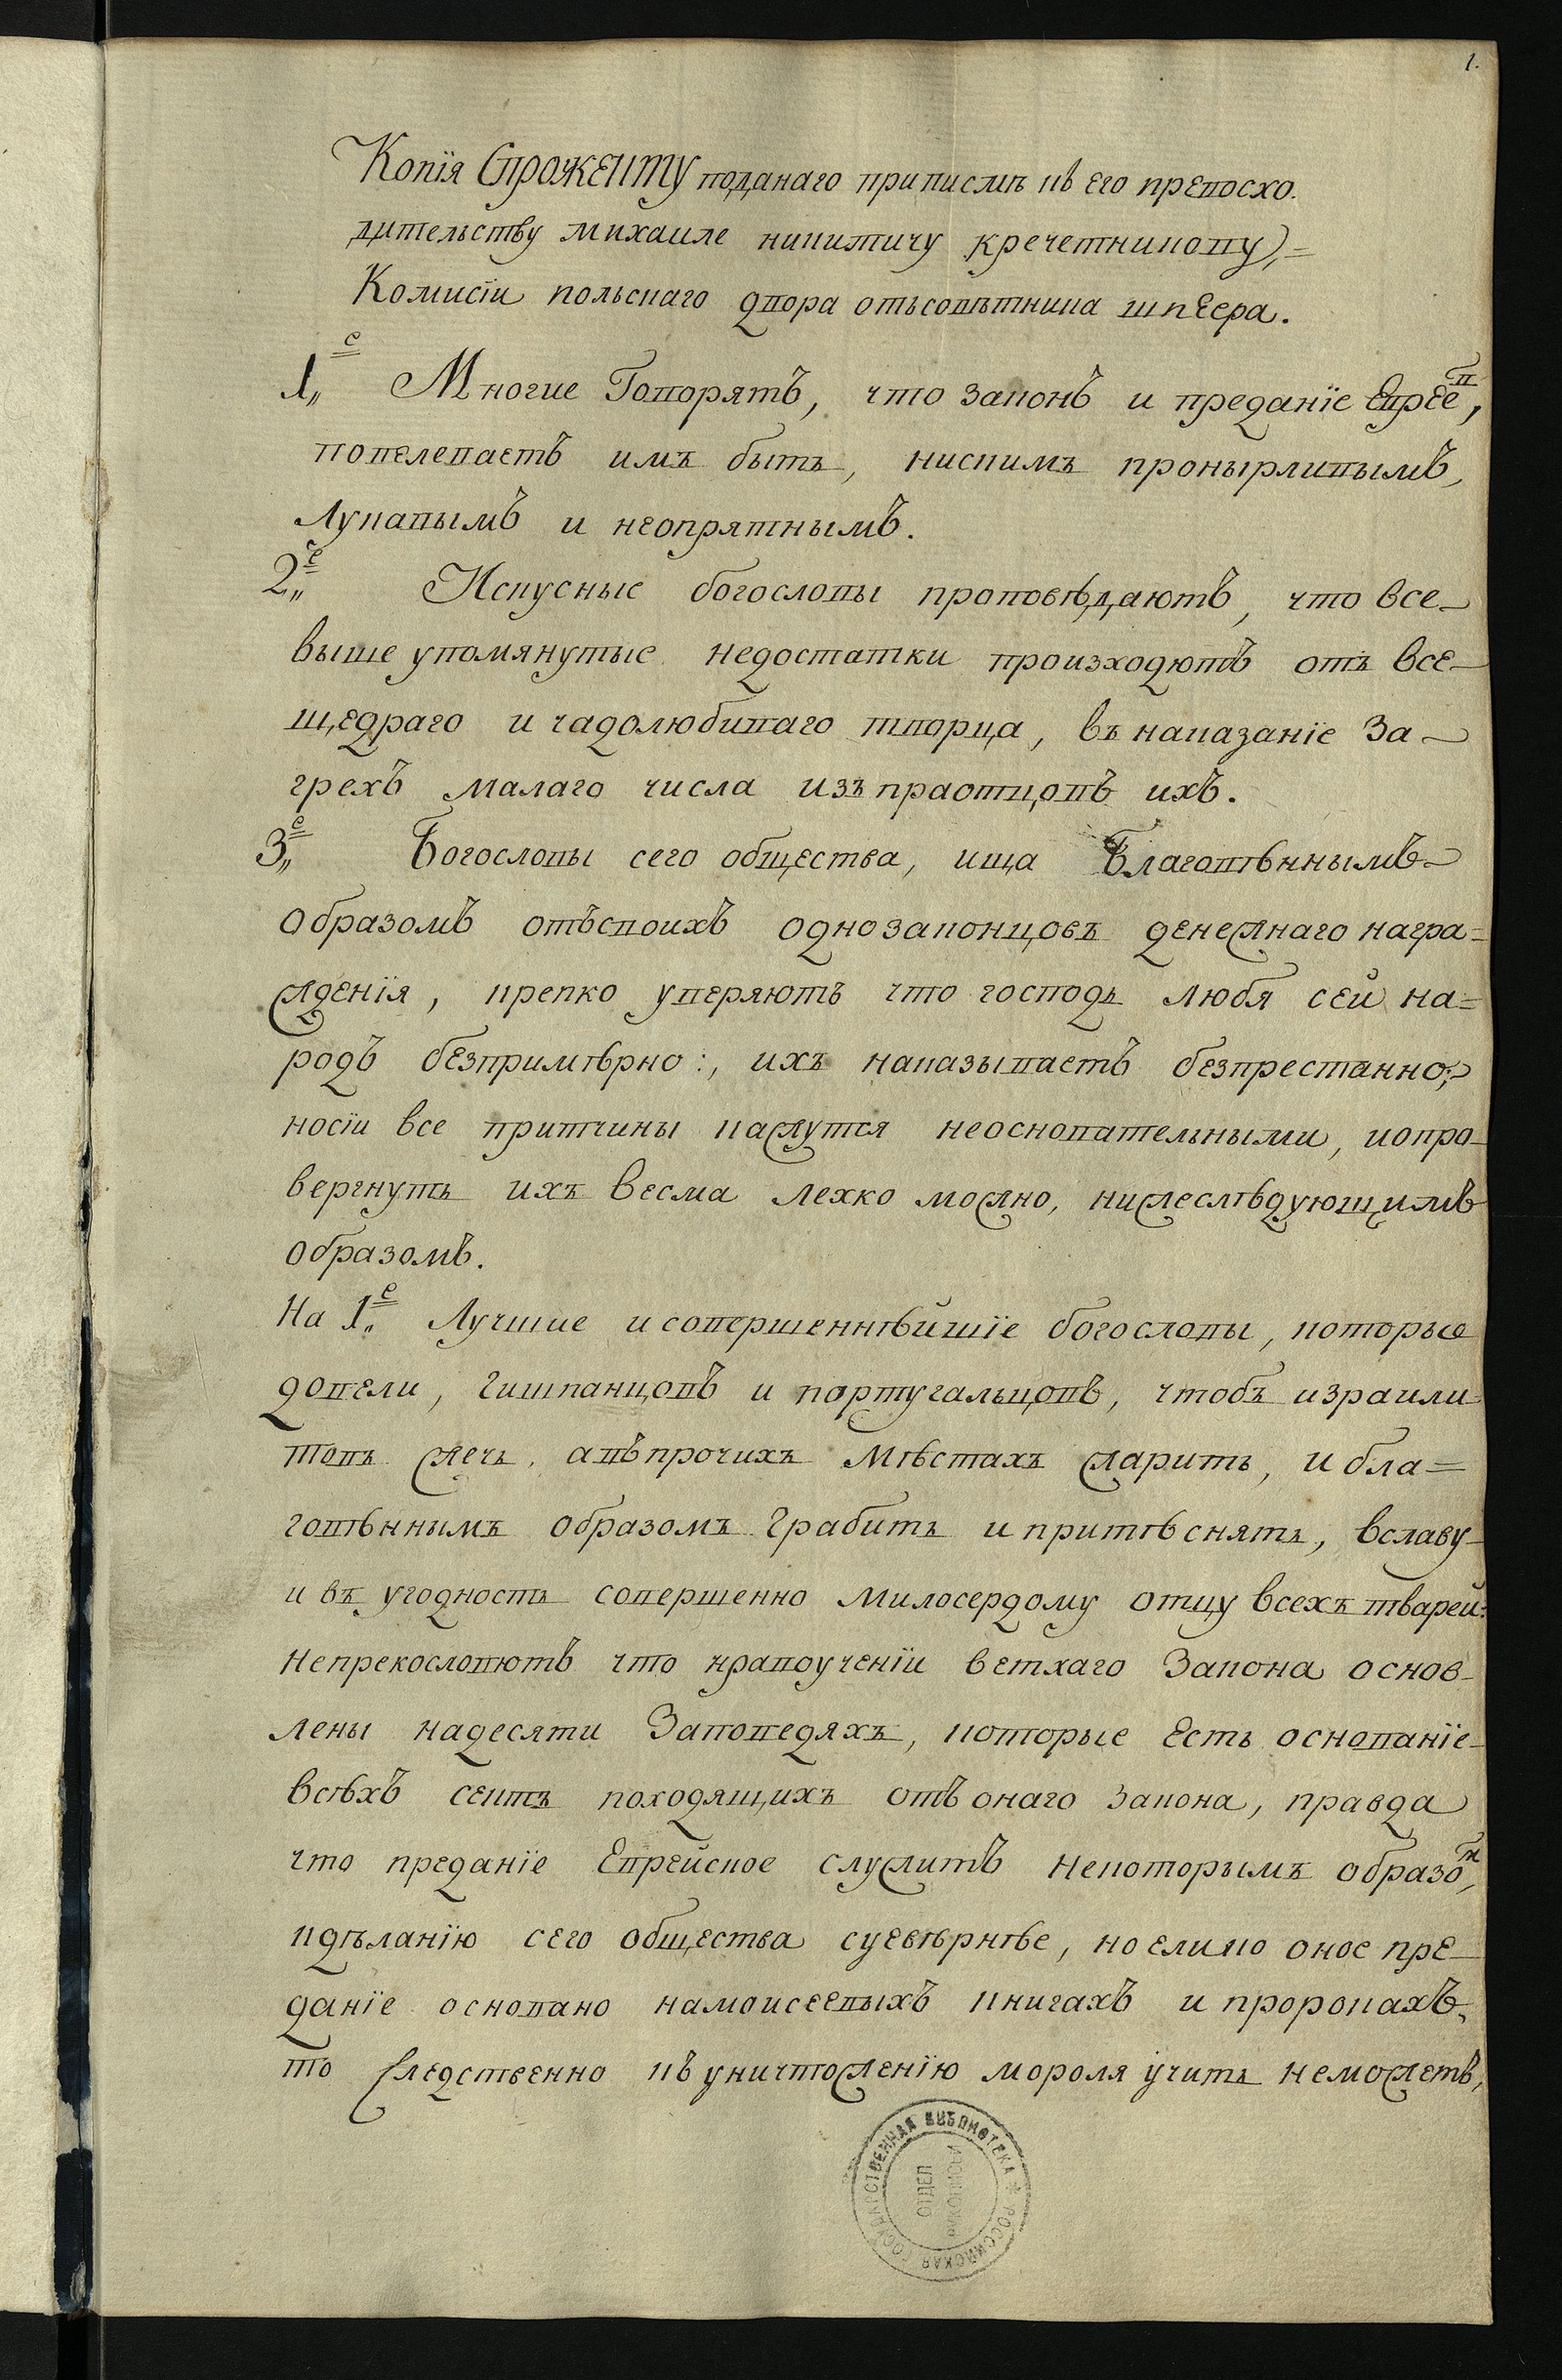 1.
Копїя Спрожекту поданаго приписмѣ къ его превосхо.
дительству михаиле никитичу кречетникову,=
Комисїи польскаго двора отъсовѣтника шпеера.
1„е Многие Говорятъ, что законъ и преданїе Еврeeв,
повелеваетъ имъ быть, ниским ъ пронырливымъ,
Лукавымъ и неопрятнымъ.
2„е Искусные богословы проповѣдаютъ, что все-
выше упомянутые недостатки произходютъ отъ все-
щедраго и чадолюбиваго творца, въ наказанїе За-
грехъ малаго числа изъ праотцовъ ихъ.
3„е Богословы сего общества, ища Благовѣннымъ-
образомъ отъсвоихъ однозаконцовъ денежнаго награ=
жденїя, крепко уверяютъ что господь любя сей на=
родъ безпримѣрно:, ихъ наказываетъ безпрестанно;
носїи все притчины кажутся неосновательными, иопро-
вергнуть ихъ весма лехко можно, нижеслѣдующимъ
образомъ.
На 1„е Лучшие исовершеннѣйшїе богословы, которые
довели, гишпанцовъ и португальцовъ, чтобъ израили-
товъ жечь, авъпрочихъ мѣстахъ жарить, и бла=
говѣннымъ образомъ грабить и притѣснять, вславу-
и въ угодность совершенно милосердому отцу всехъ тварей:
Непрекословютъ что нравоученїи ветхаго Закона основ-
лены надесяти Заповедяхъ, которые Есть основанїе-
всѣхъ сектъ походящихъ отъ онаго закона, правда
что преданїе Еврейское служитъ некоторымъ образом,
кдѣланїю сего общества суевѣрнѣе, но елико оное пре-
данїе основано намоисеевыхъ книгахъ и пророкахъ,
то следственно къ уничтоженїю мороля учить неможетъ,
РОССИЙСКАЯ ГОСУДАРСТВЕННАЯ БИБЛИОТЕКА *
ОТДЕЛ
РУКОПИСЕЙ